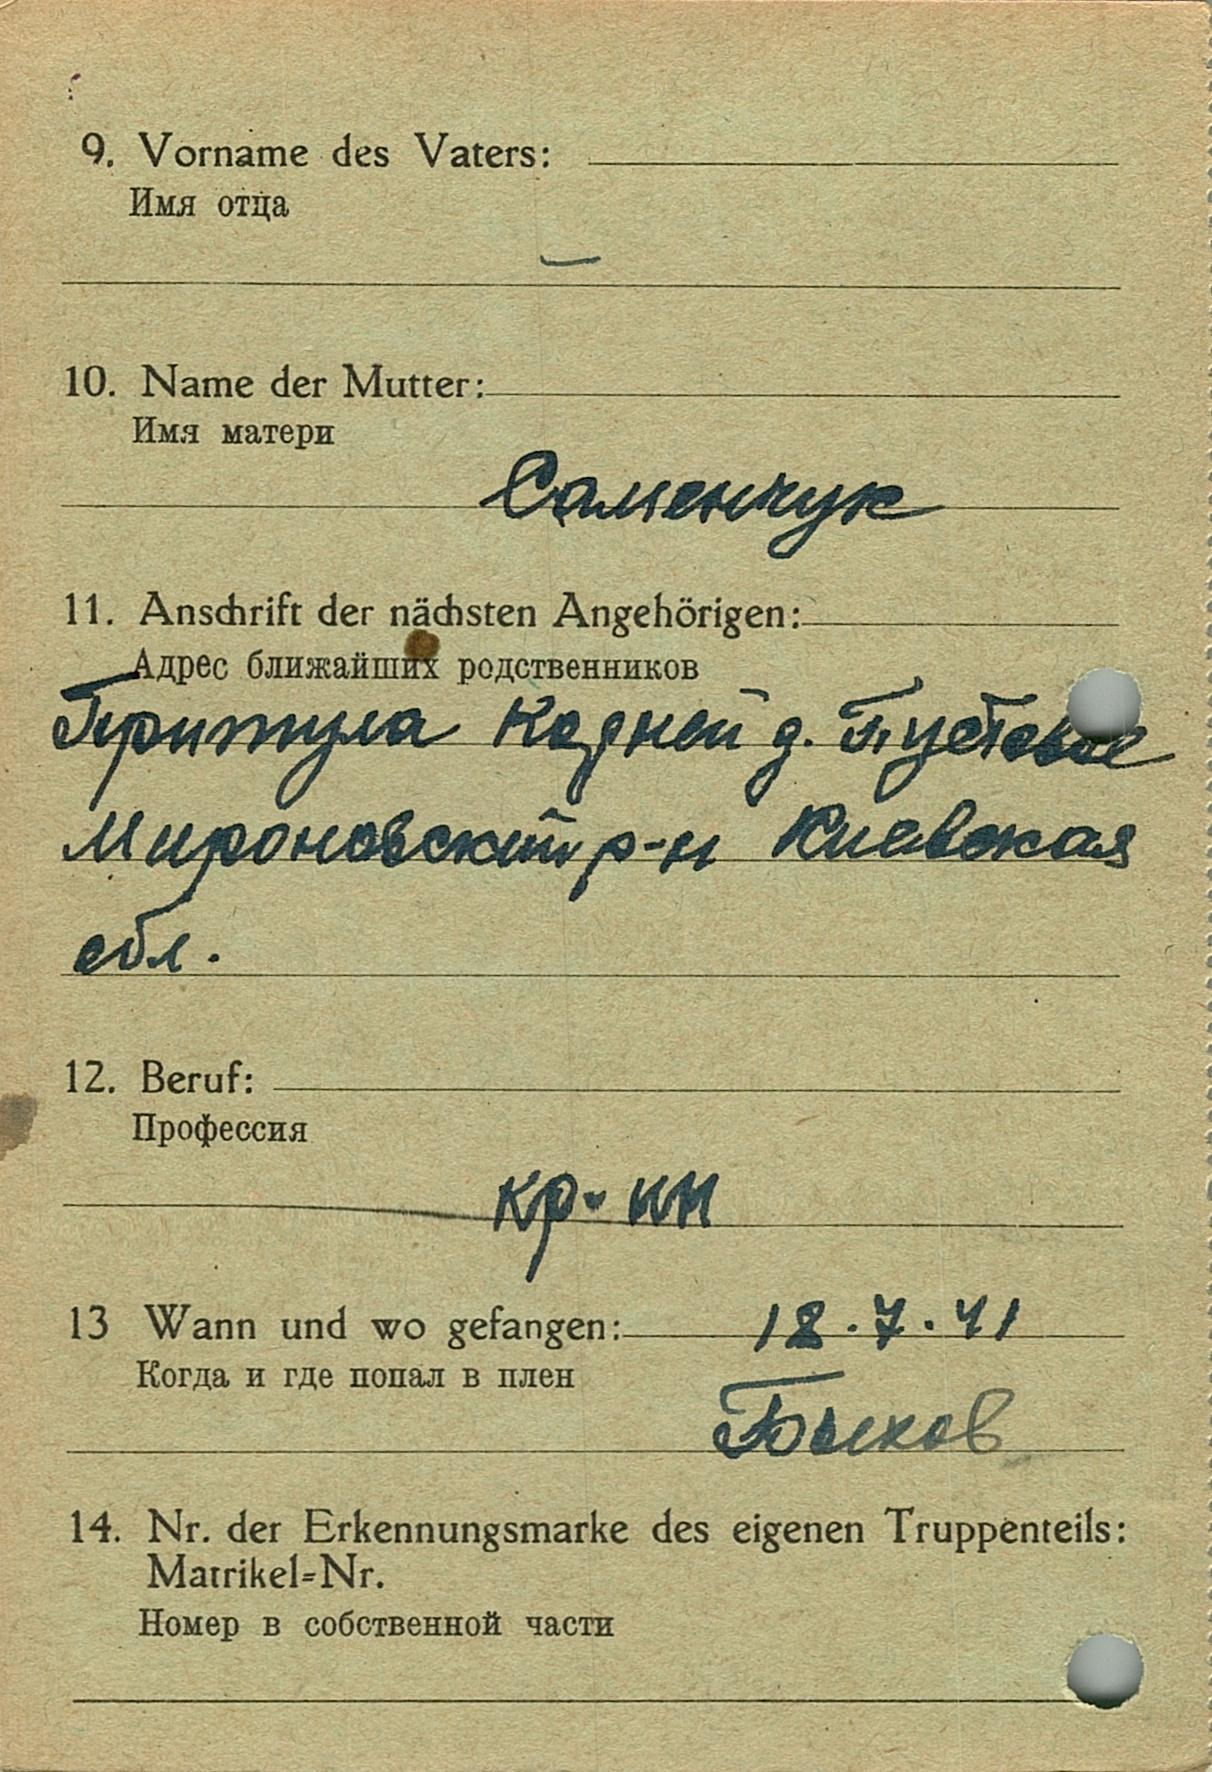 9. Vorname des Vaters:
Имя отца
—
10. Name der Mutter:
Имя матери
Саменчук
11. Anschrift der nächsten Angehörigen:
Адрес ближайших родственников
Притула д. Пустовое
Мироновский р-н Киевская
обл.
12. Beruf:
Профессия
кр-ин
13 Wann und wo gefangen: 18.7.41
Когда и где попал в плен
Быхов
14. Nr. der Erkennungsmarke des eigenen Truppenteils:
Matrikel=Nr.
Номер в собственной части